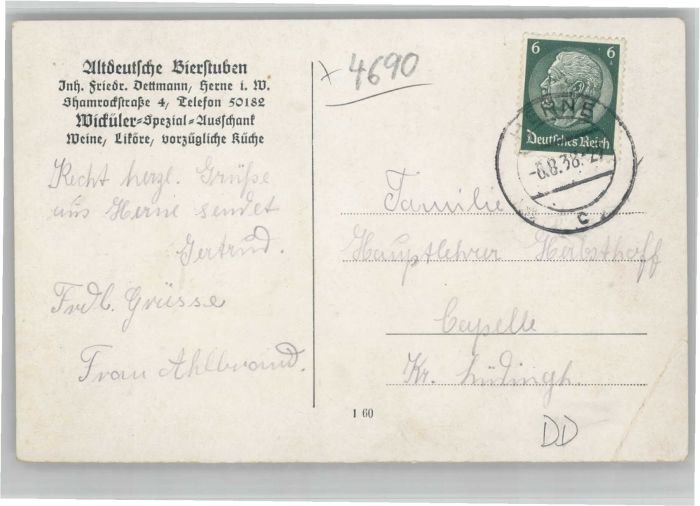 Altdeutsche Bierstuben
Inh. Friedr. Dettmann, Herne i. W.
Shamrockstraße 4, Telefon 50182
Wicküler-Spezial-Ausschank
Weine, Liköre, vorzügliche Küche
Recht herzl. Grüße
aus Herne sendet
Gertrud.
Frdl. Grüsse
Frau Ahlbrand.
4690
6 6
Deutsches Reich
HERNE
-6.8.38.-21
c
Familie
Hauptlehrer Herbsthoff
Capelle
Kr. Lüdingh.
1 60
DD